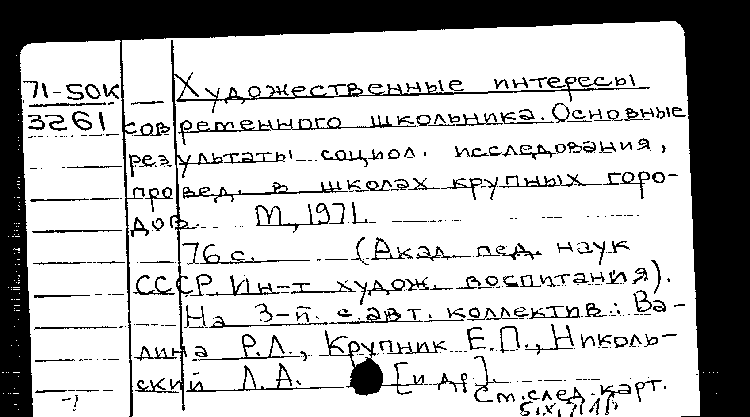 71-50К Художественные интересы
3261 современного школьника. Основные
результаты социол. исследования,
провед. в школах крупных горо-
дов. М., 1971.
76 с. (Акад. пед. наук
СССР. Ин-т худож. воспитания).
На 3-й с. авт. коллектив: Ва-
лина Р.Л., Крупник Е.П., Николь-
ский Л.А. [и др].
См. след. карт.